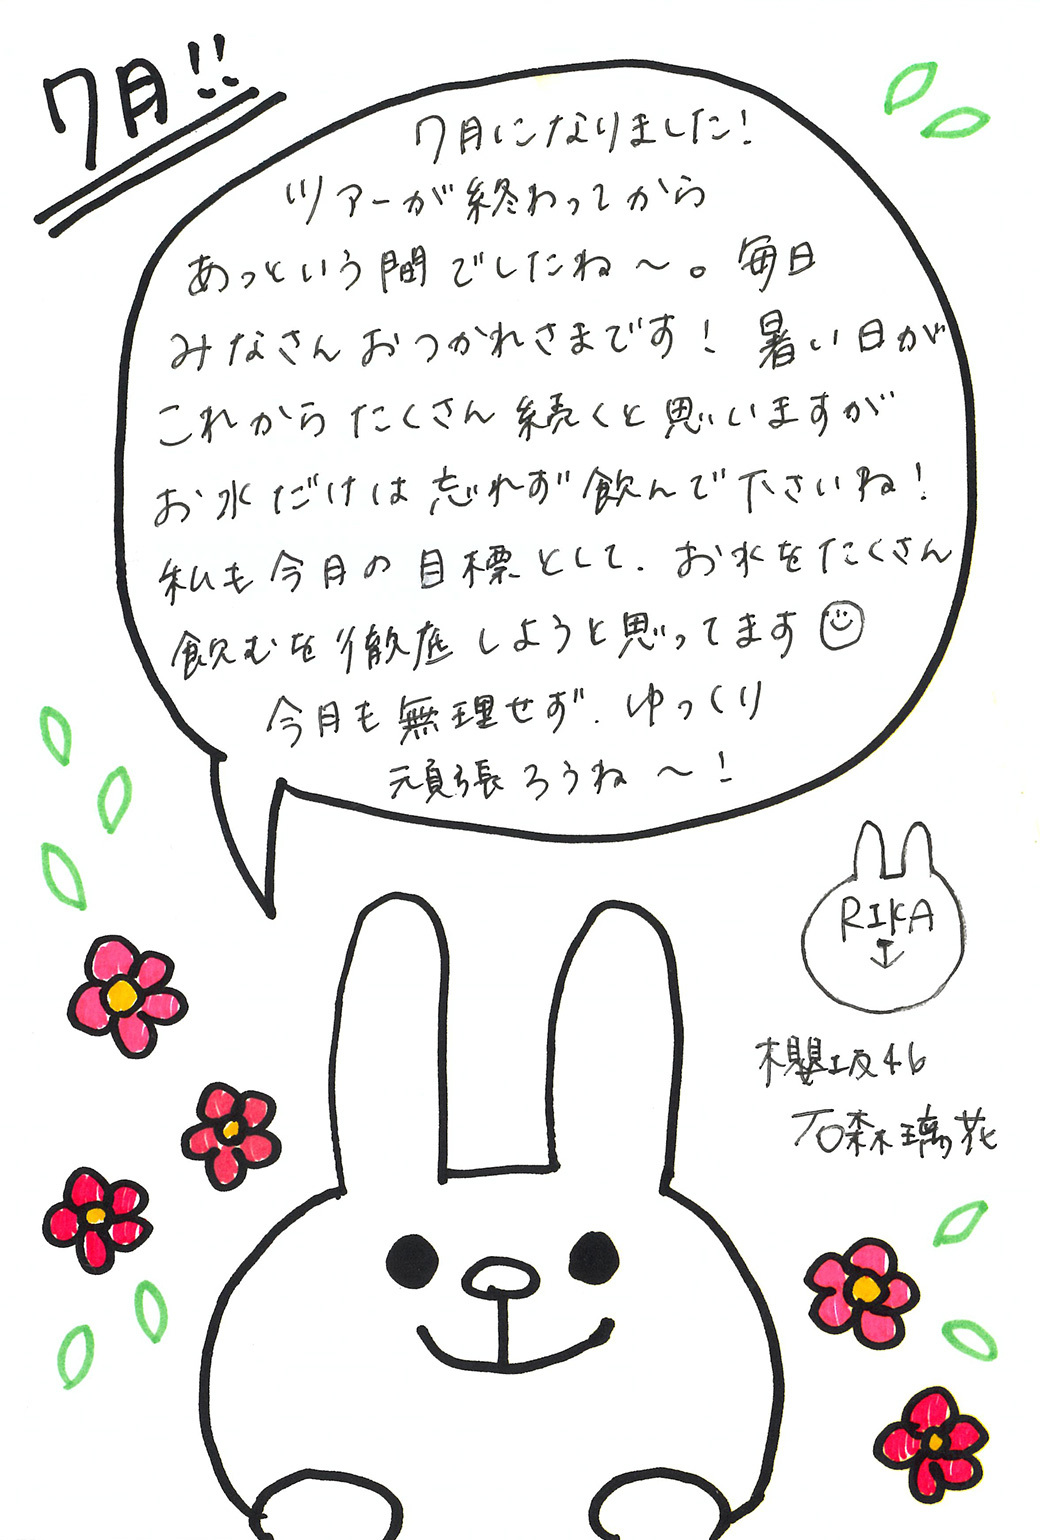 7月!!
7月になりました!
ツアーが終わってから
あっという間でしたね〜。毎日
みなさんおつかれさまです! 暑い日が
これからたくさん続くと思いますが
お水だけは忘れず飲んで下さいね!
私も今月の目標として、お水をたくさん
飲むを徹底しようと思ってます☺
今月も無理せず、ゆっくり
頑張ろうね〜!
RIKA
櫻坂46
石森璃花